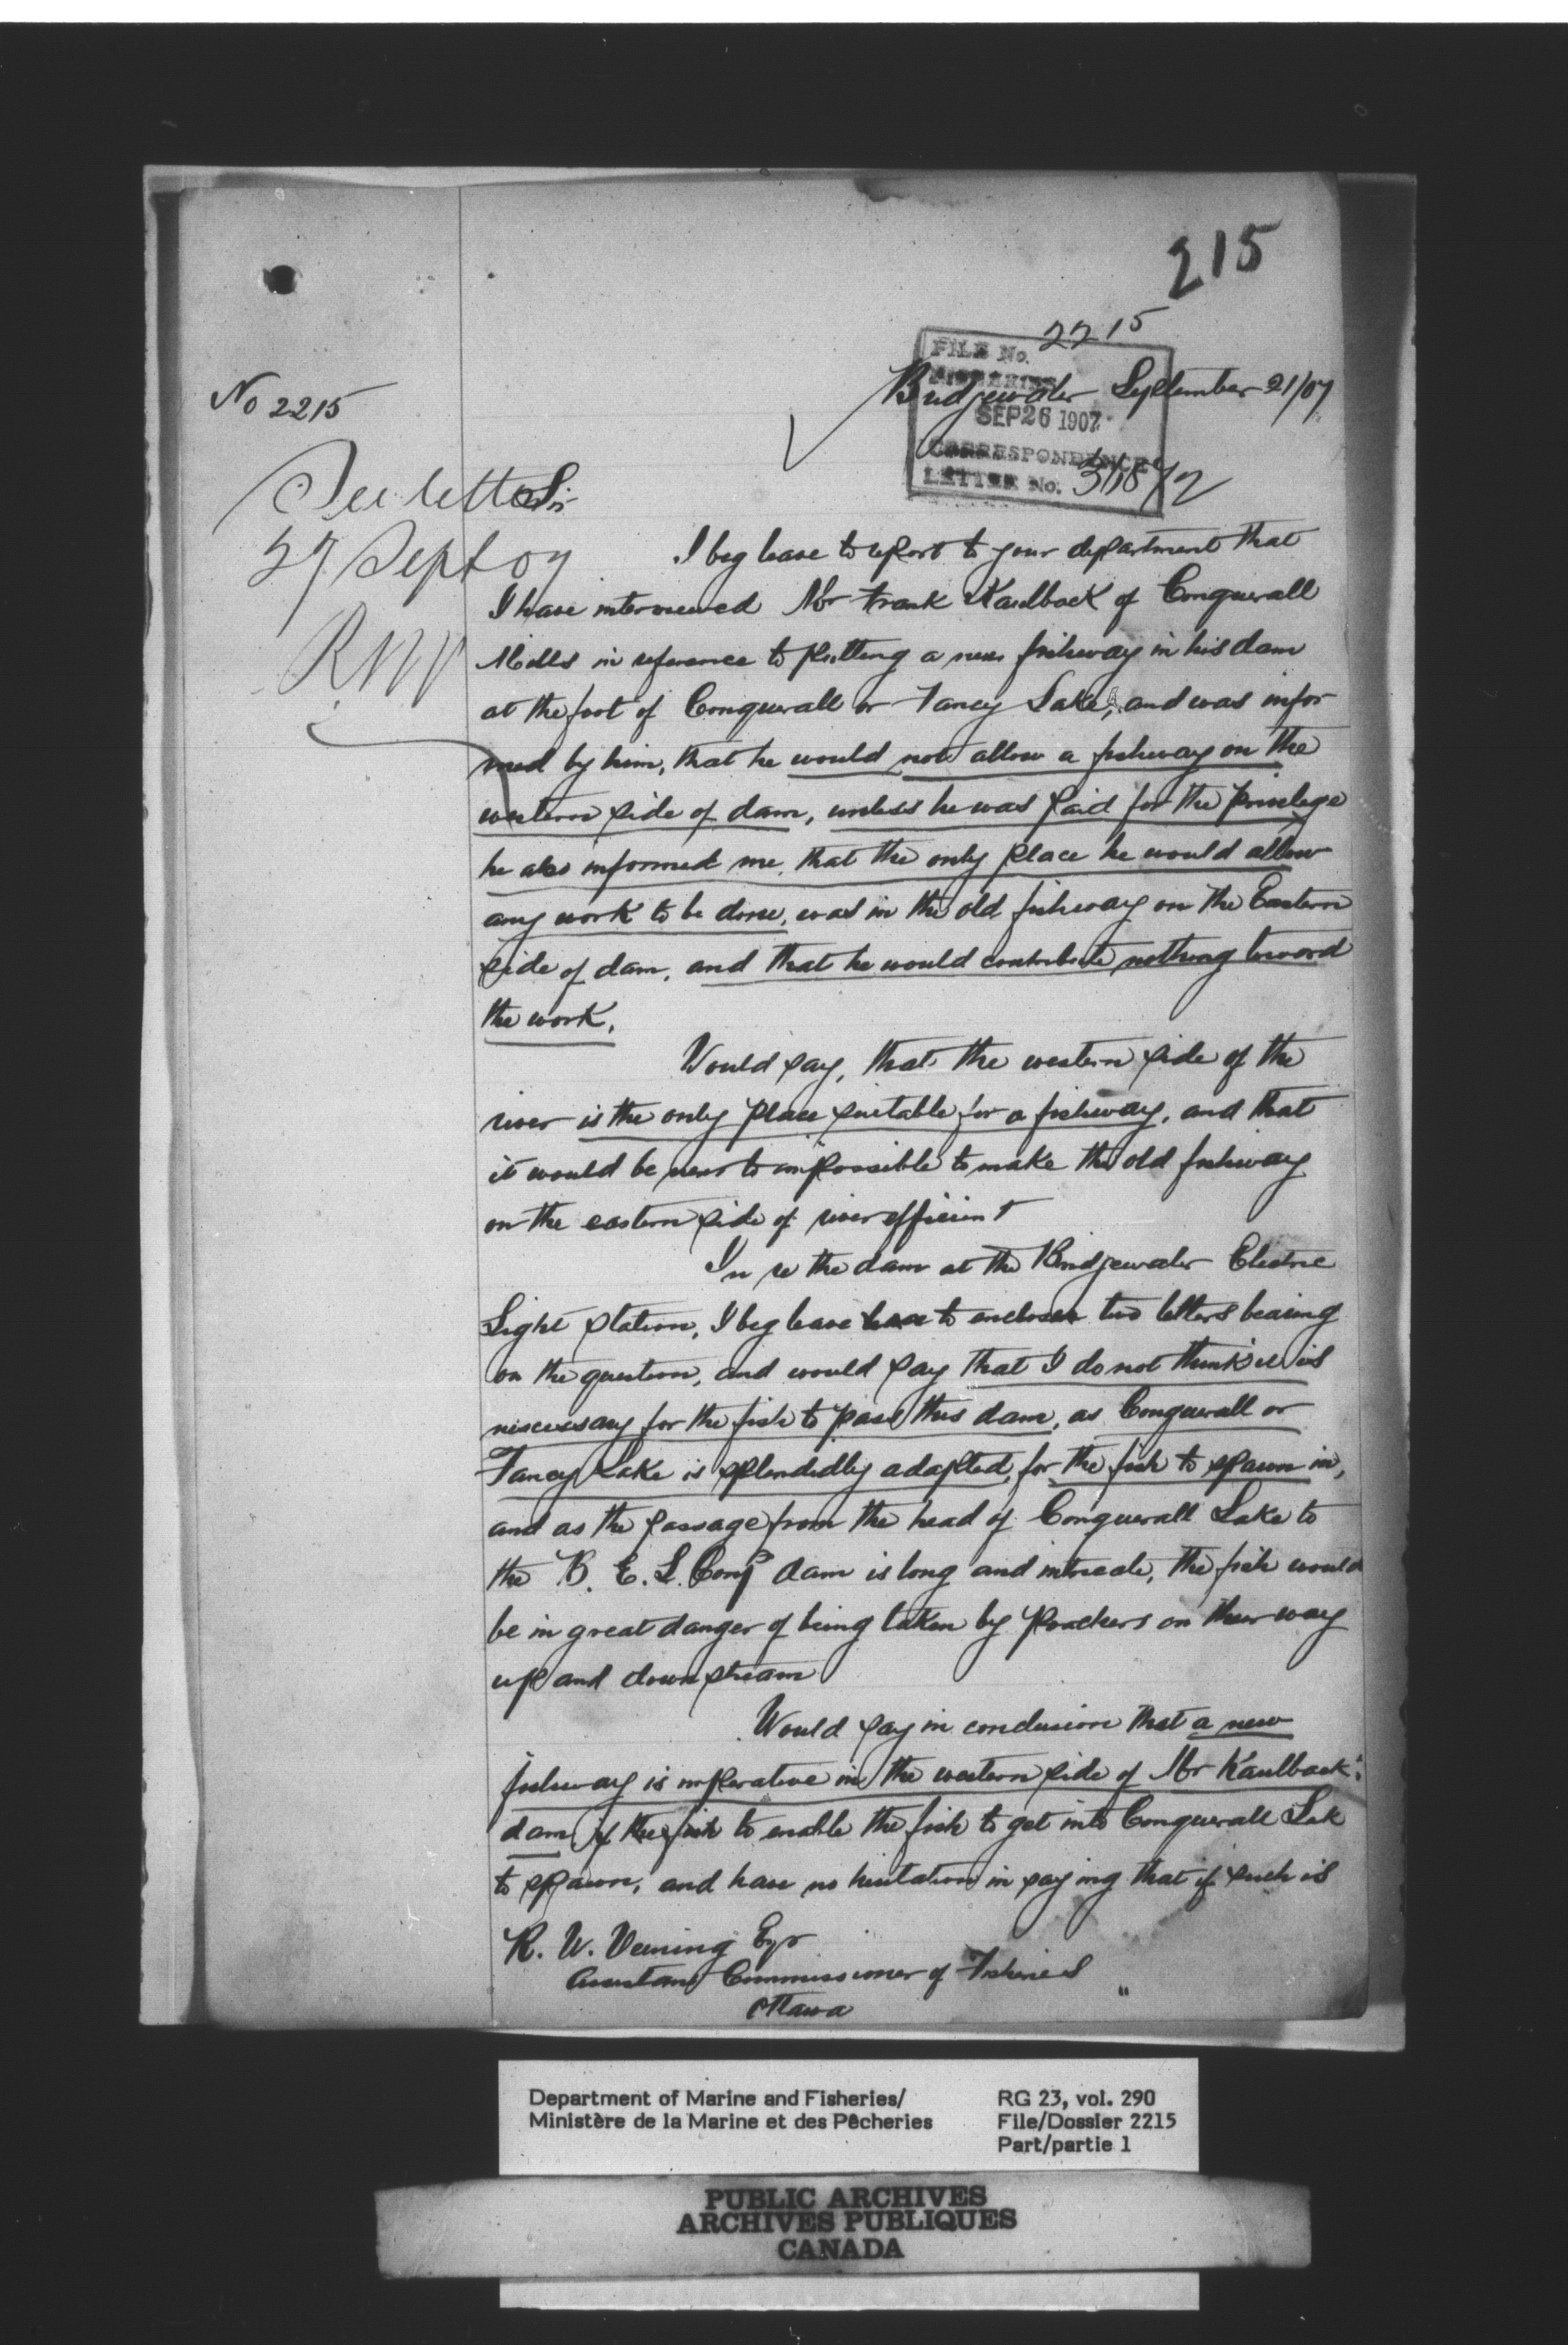 215
2215
FILE No.
FISHERIES
Bridgewater September 21/07
SEP 26 1907
CORRESPONDENCE
LETTER No.
No 2215
See letter
27 Sept 07
RNV
Sir
I beg leave to report to your department that
I have interviewed Mr Frank Kaulback of Conquerall
Mills in reference to putting a new fishway in his dam
at the foot of Conquerall or Fancy Lake, and was infor
med by him, that he would not allow a fishway on the
western side of dam, unless he was paid for the privelege
he also informed me, that the only place he would allow
any work to be done, was in the old fishway on the Eastern
side of dam, and that he would contribute nothing toward
the work.
Would say, that the western side of the
river is the only place suitable for a fishway, and that
it would be next to impossible to make the old fishway
on the eastern side of river efficient
In re the dam at the Bridgewater Electric
Light station, I beg leave to enclose two letters bearing
on the question, and would say that I do not think it is
nescessary for the fish to pass this dam, as Conquerall or
Fancy Lake is splendidly adapted, for the fish to spawn in,
and as the passage from the head of Conquerall Lake to
the B. E. L. Comp dam is long and intricate, the fish would
be in great danger of being taken by poachers on their way
up and down stream
Would say in conclusion that a new
fishway is imperative in the western side of Mr Kaulback's
dam if the fish to enable the fish to get into Conquerall Lak
to spawn, and have no hesitation in saying that if such is
R. W. Venning Eqr
Assistant Commissioner of Fisheries
Ottawa
"
Department of Marine and Fisheries/
Ministère de la Marine et des Pêcheries
RG 23, vol. 290
File/Dossier 2215
Part/partie 1
PUBLIC ARCHIVES
ARCHIVES PUBLIQUES
CANADA